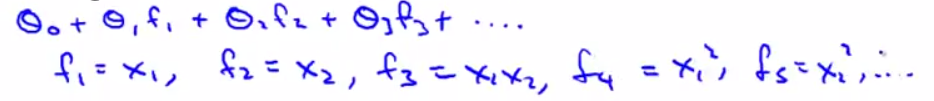 θ₀ + θ₁f₁ + θ₂f₂ + θ₃f₃ + ....
f₁ = x₁, f₂ = x₂, f₃ = x₁x₂, f₄ = x₁², f₅ = x₂², ...